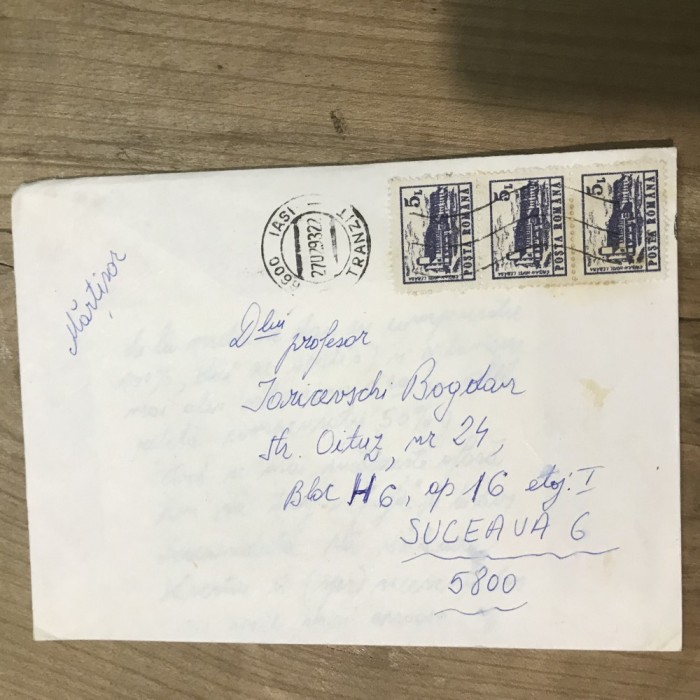 Mărțișor
6600 IASI TRANZIT
5L
POSTA ROMANA
5L
POSTA ROMANA
5L
POSTA ROMANA
Dlui
profesor
Iaricevschi Bogdan
Str. Oituz, nr 24,
Bloc H6, ap 16 etaj: I
SUCEAVA 6
5800